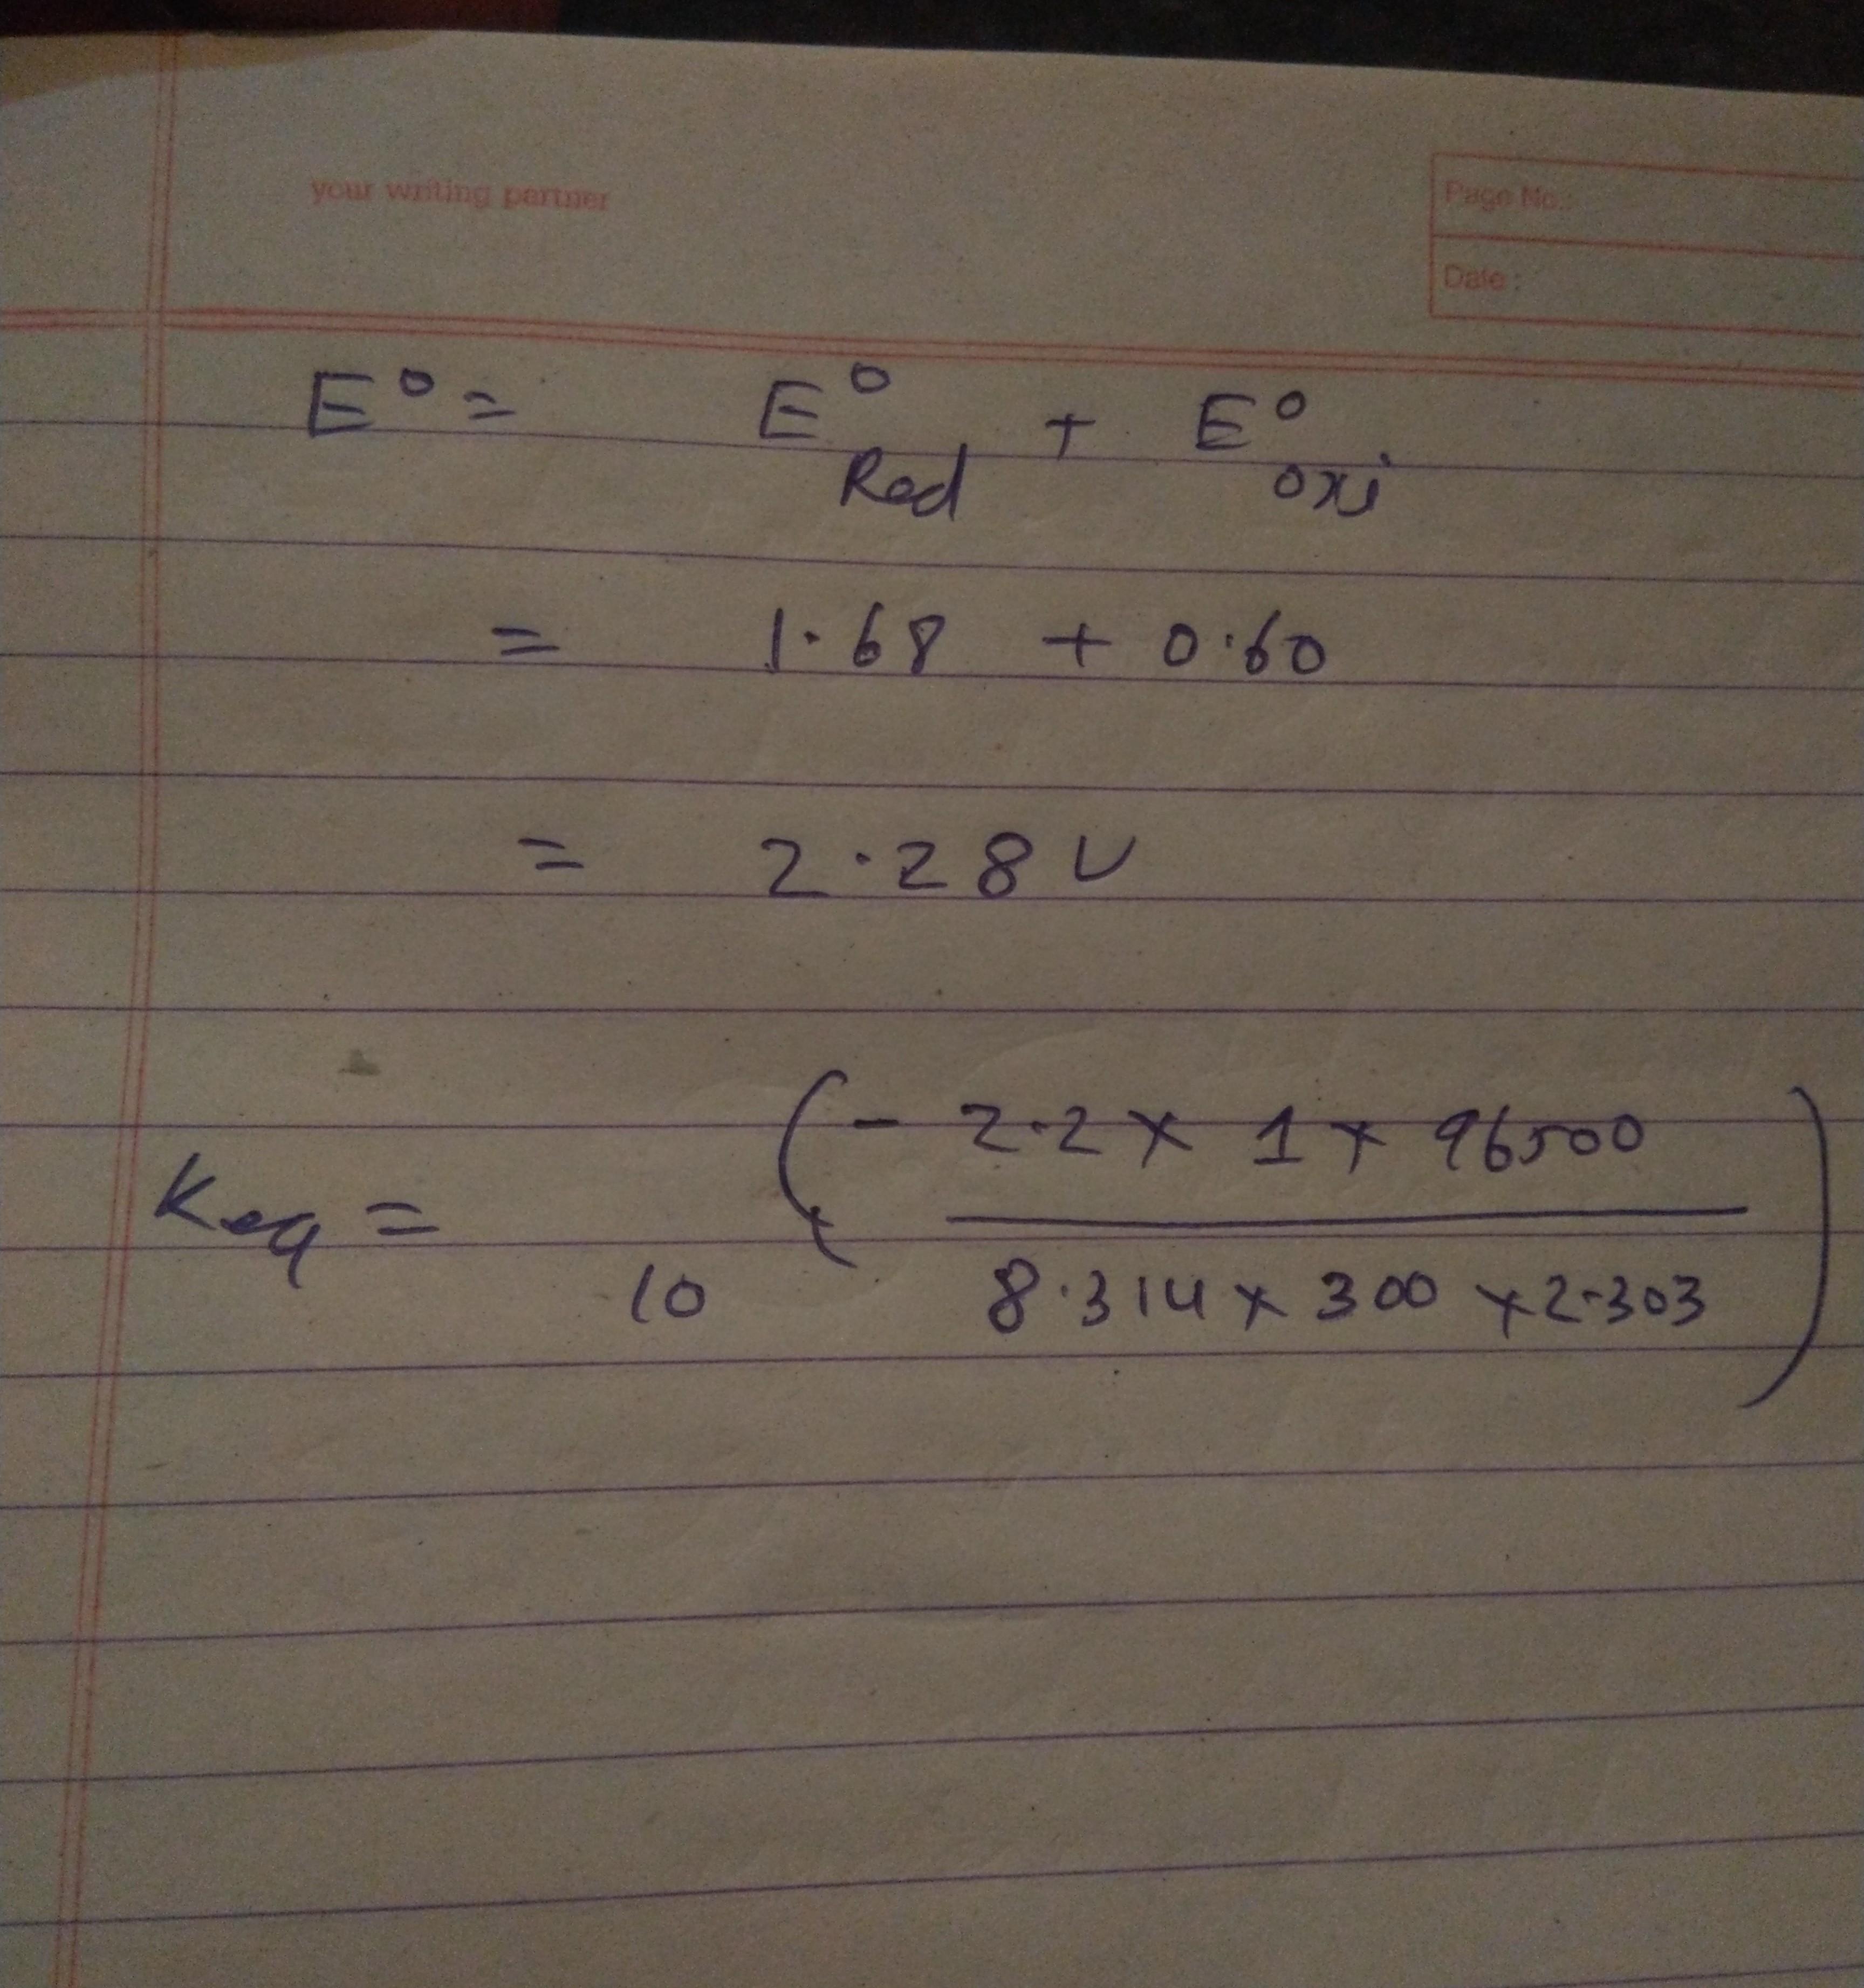 your writing partner
Page No.:
Date :
E° = E°Red + E°oxi
= 1.68 + 0.60
= 2.28 V
Keq = 10 (- 2.2 x 1 x 96500 / 8.314 x 300 x 2.303)